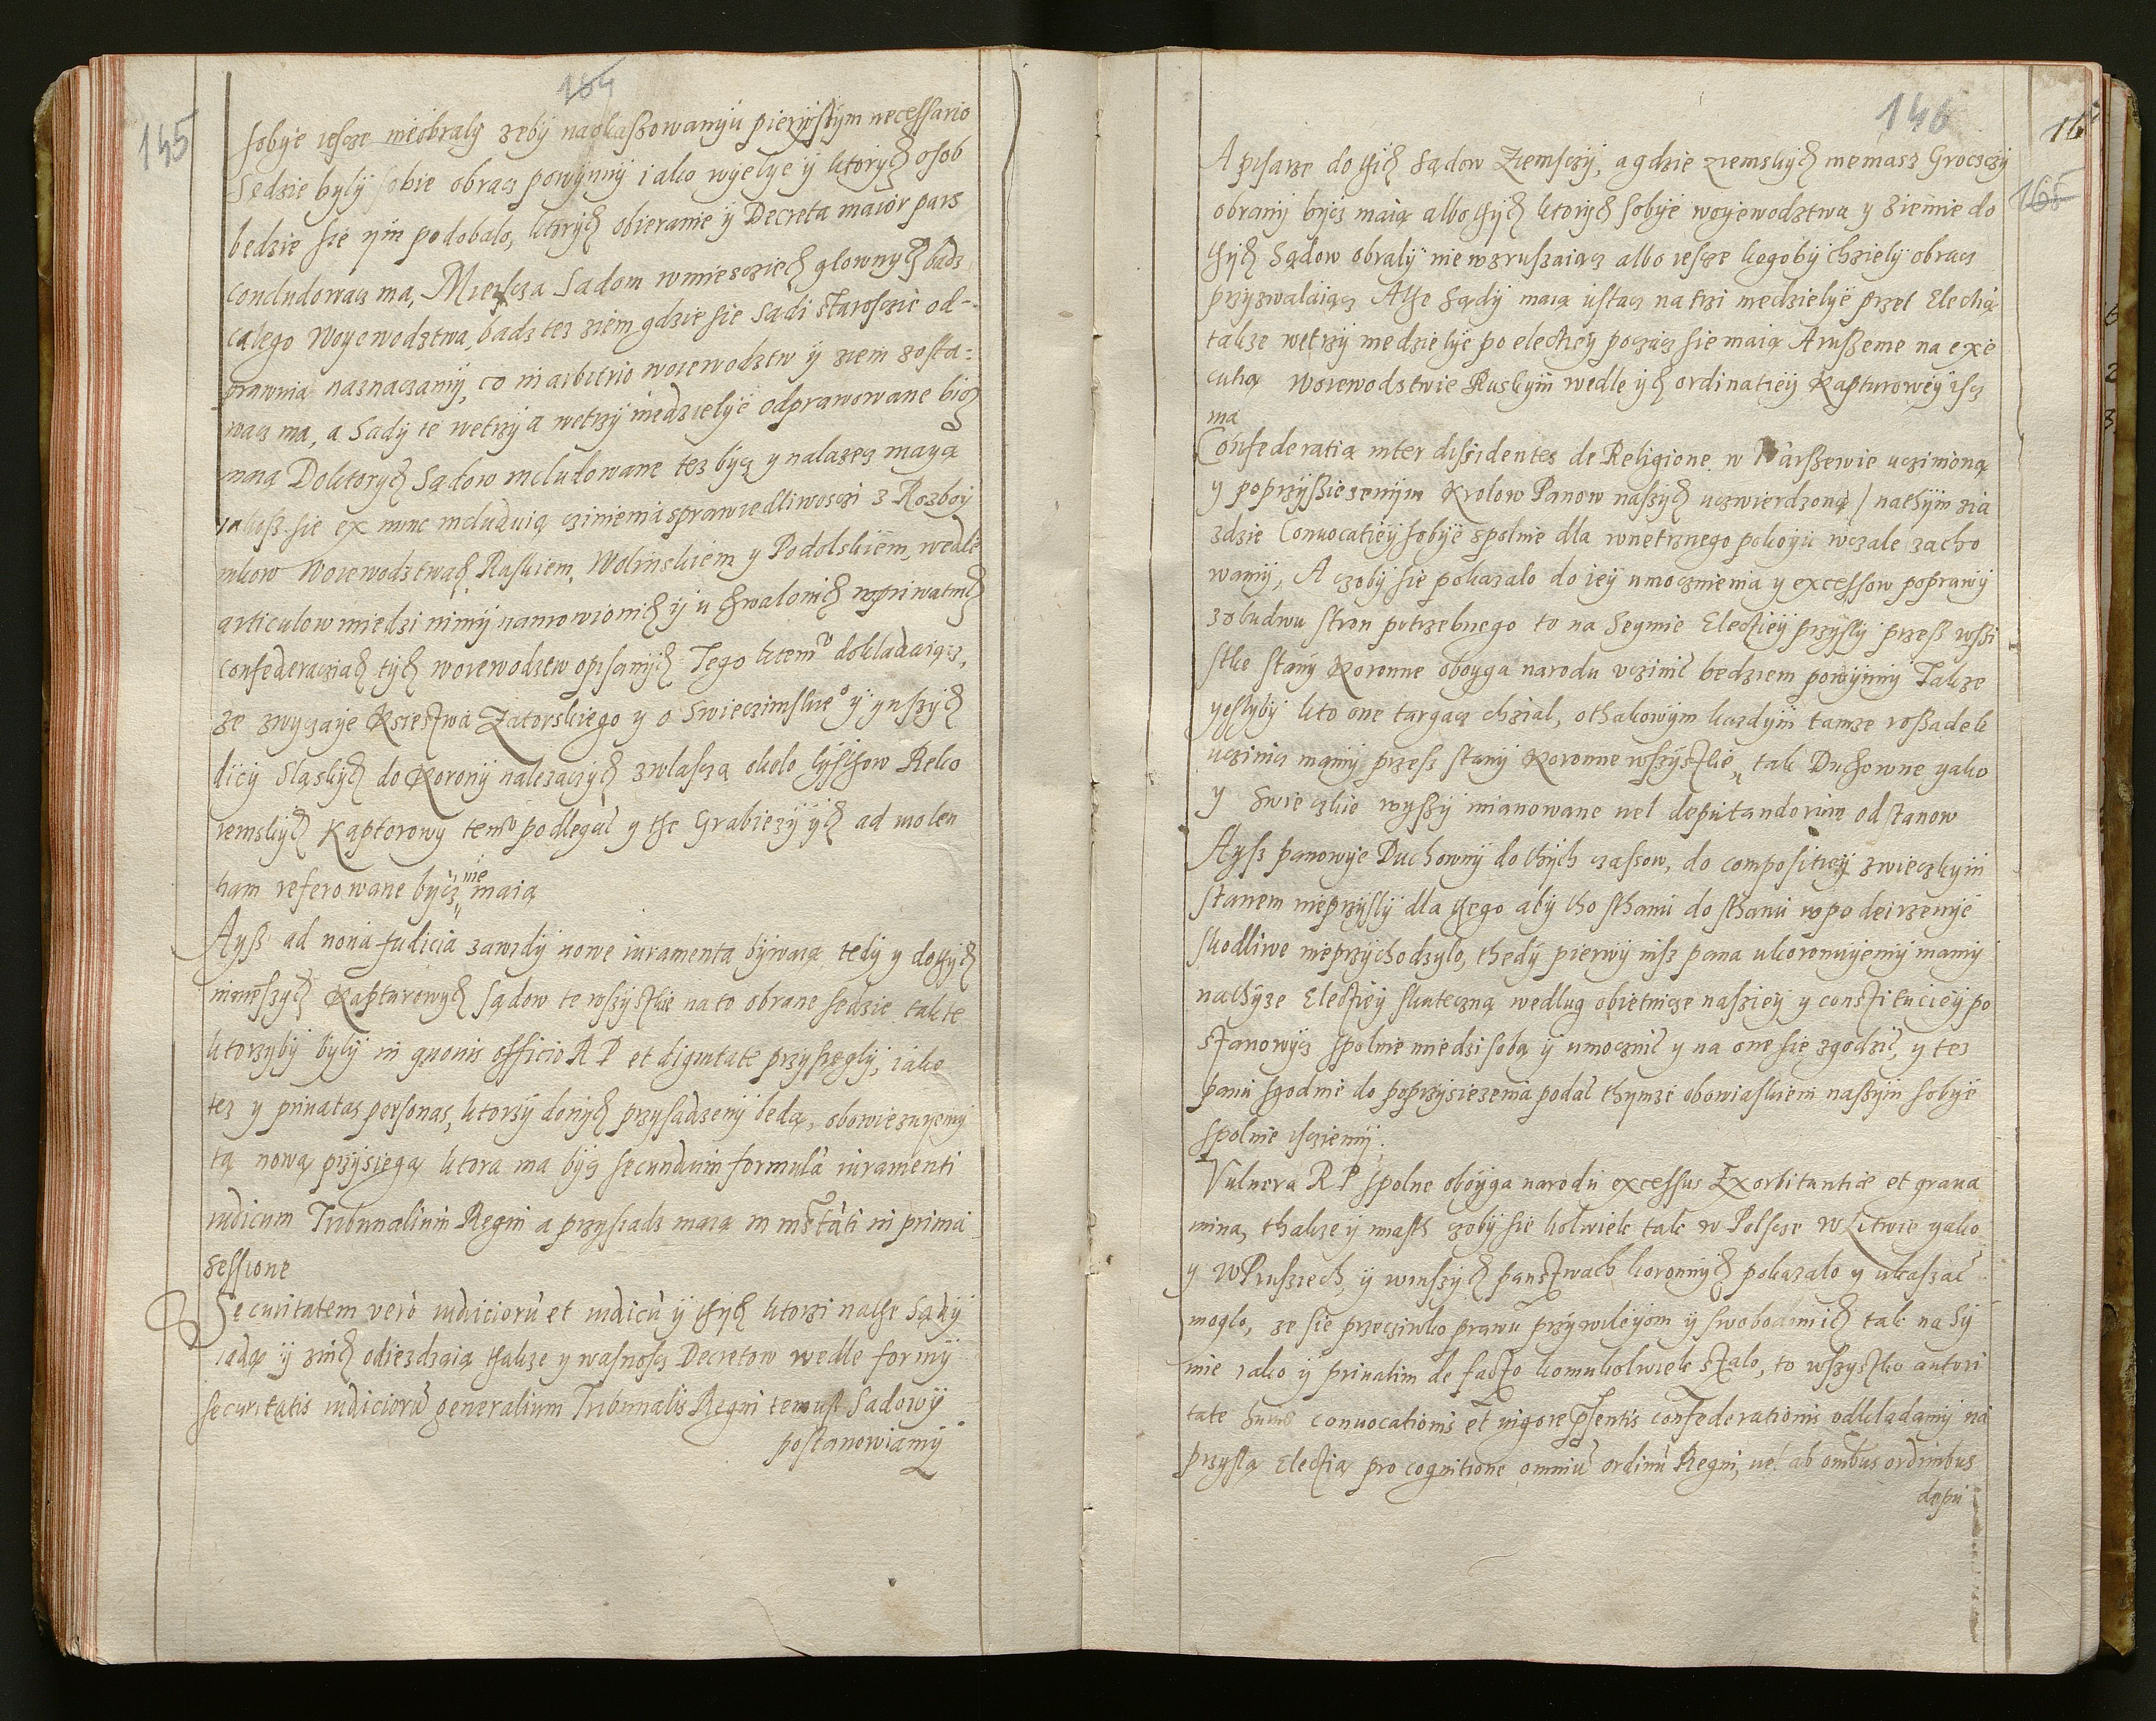 164
145
sobÿe iescze nieobralÿ zebÿ naokaszowanÿu pierwszÿm necessario
Sedzie bylÿ sobie obracz powÿnnÿ iako wÿelÿe ÿ ktorÿch osob
bedzie sie ÿm podobalo, ktorÿch obieranie ÿ Decreta maior pars
concludowacz ma, Miesca Sadom wmiesciech glownÿch badz
calego Woyewodztwa, badz tez ziem gdzie sie Sadi staroscie od-
prawuia naznaczamÿ, co in arbitrio woiewodztw ÿ ziem zosta:
wacz ma, a Sadÿ te wetrzÿ a wetrzÿ niedzielÿe odprawowane bicz
maia Doktorÿch Sądow includowane tez bÿcz y nalazecz maÿą
iakosz sie ex nunc includuią czinienia sprawiedliwosczi z Rozboÿ
nikow Woiewodztwach Ruskiem, Wolinskiem y Podolskiem, wedle
articulow miedzi nimÿ namowionich ÿ uchwalonich wpriwatnich
confederacziach tÿch woiewodztw opisanÿch Tego ktemu dokladaiącz,
ze zwyczaÿe Ksiestwa Zatorskiego y oswieczimskie° ÿ ÿnszÿch
dicÿ Sląskÿch do Koronÿ nalezaczÿch zwlascza okolo lÿsthow Reko
iemskÿch Kaptorowy temu podlegać y the Grabiezÿ ÿch ad uolen
tiam referowane bÿcz nie maią
Aÿsz ad noua Iudicia zawzdÿ nowe iuramenta bÿwaia tedÿ y dothÿch
ninieszÿch Kapturowÿch sądow te wszÿstkie nato obrane sedzie tak te
ktorzÿbÿ bÿlÿ in quouis officio R P et dignitate przysięglÿ, iako
tez y priuatas personas, ktorzÿ donÿch przysadzenÿ bedą, obowiezuiemÿ
tą nową przÿsiegą ktora ma bÿcz secundum formulā iuramenti
iudicum Tribunalium Regni a przysiadz maią in in prima
sessione
Securitatem verò iudiciorū et iudicū ÿ thÿch ktorzi nathe Sądÿ
iadą ÿ znich odiezdzaią thakze y wasnoscz Decretow wedle formÿ
securitatis iudiciorū generalium Tribunalis Regni temusz Sadowÿ
postanowiamÿ
146
16
165
A pisarze do thich Sądow Ziemsczÿ, a gdzie ziemskÿch niemasz Groczczÿ
obranÿ bÿcz maią albo thÿch ktorÿch sobÿe woÿewodztwa y Ziemie do
thÿch Sądow obralÿ niewzruszaiącz albo iescze kogobÿ chzielÿ obracz
przyzwalaiącz Athe Sądÿ maią ustacz na trzi niedzielÿe przet Electią
takze wetrzÿ niedzielÿe po electieÿ począcz sie maią A ruszenie na exe
cutią Woiewodstwie Ruskÿm wedle ÿch ordinatieÿ Kapturoweÿ iscz
ma
Confederatią inter dissidentes de Religione w Warszewie uczinioną
y poprzÿsiezenÿm Krolow Panow naszÿch utwierdzoną / nathÿm zia
zdzie Conuocatieÿ sobÿe spolnie dla wnetrznego pokoÿu wczale zacho
wamÿ, A czobÿ sie pokazalo do ieÿ umocznienia y excessow poprawÿ
zobudwu stron potrzebnego to na Seymie Electieÿ przÿslÿ przesz wszi
stkie stanÿ Koronne oboyga narodu uczinić bedziem powÿnnÿ Takze
yeslybÿ kto one targacz chzial, othakowÿm kazdÿm tamze rossadek
uczinicz mamÿ przesz stanÿ Koronne wszÿstkie tak Duchowne yako
y Swieczkie wyszÿ mianowane uel deputandorum od stanow
Aysz panowÿe Duchownÿ do thÿch czassow, do compositieÿ zswieczkÿm
stanem nieprzÿslÿ dla thego abÿ tho sthanu do sthanu wpodeirzenÿe
skodliwe nieprzÿchodzylo, thedÿ pierwÿ nisz pana ukoronuÿemÿ mamÿ
nathÿze Electieÿ skuteczną wedlug obietnicze nasseÿ y constitucieÿ po
stanowÿcz spolnie miedzi sobą ÿ umocznić y na one sie zgodzić, y tez
panu zgodnie do poprzÿsiezenia podać thymze obowiaskiem naszÿm sobÿe
spolnie ÿsciemÿ.
Vulnera R P spolne oboyga narodu excessus Exorbitantiæ et graua
mina, thakze ÿ wasth czobÿ sie kolwiek tak w Polscze w Litwie yako
y w Prusziech, ÿ winszÿch panstwach koronnÿch pokazalo y ukaszać
moglo, ze sie przeciwko prawu przÿwileÿom ÿ swobodom ich tak na Sÿ
mie iako ÿ priuatim de facto komukolwiek stalo, to wszystko autori
tate huius conuocationis et uigore psentis confederationis odkladamÿ na
przyslą Electią pro cognitione omniū ordinū Regni, uel ab omībus ordinibus
depu